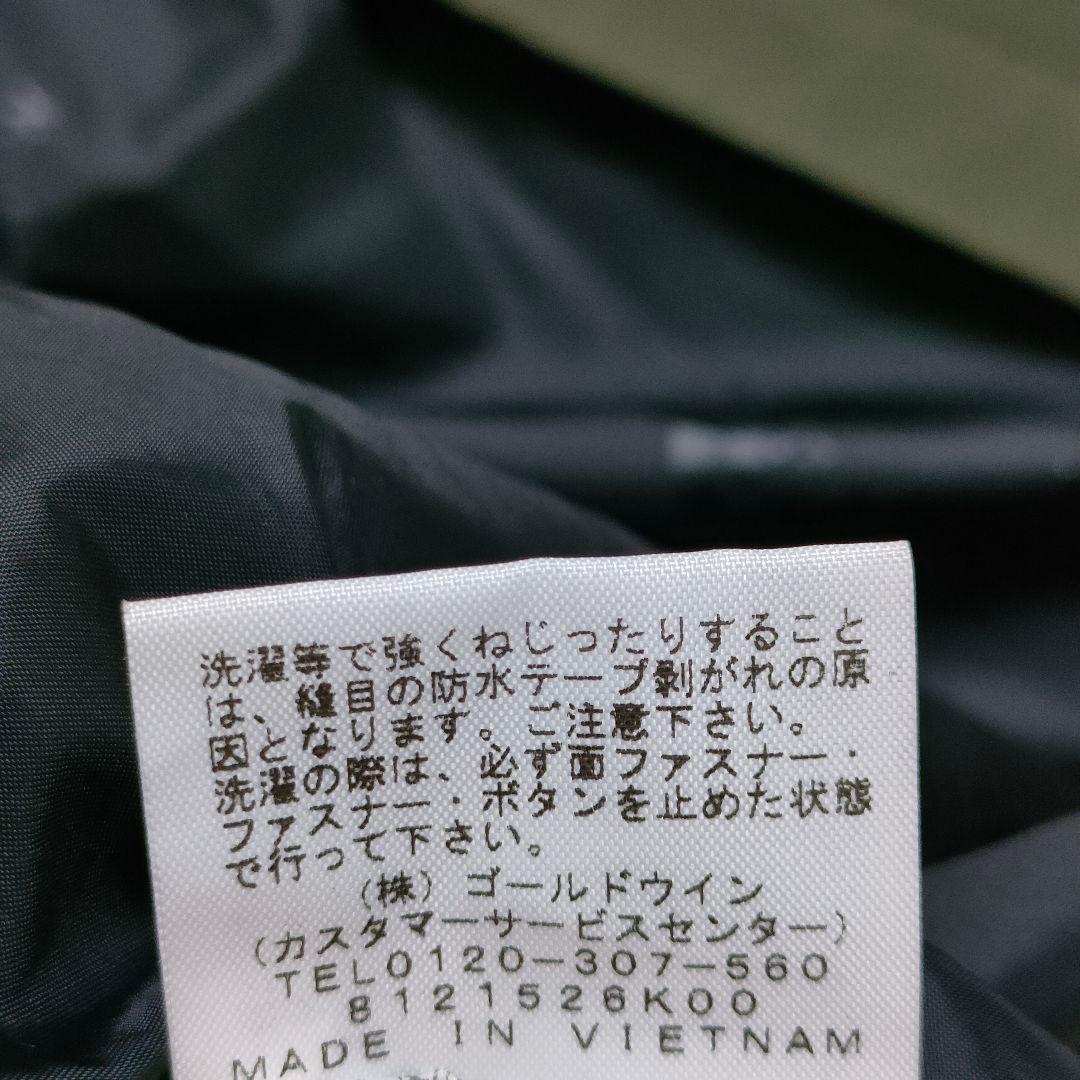 洗濯等で強くねじったりすること
は、縫目の防水テープ剥がれの原
因となります。ご注意下さい。
洗濯の際は、必ず面ファスナー・
ファスナー・ボタンを止めた状態
で行って下さい。
(株) ゴールドウイン
(カスタマーサービスセンター)
TEL0120-307-560
8121526K00
MADE IN VIETNAM